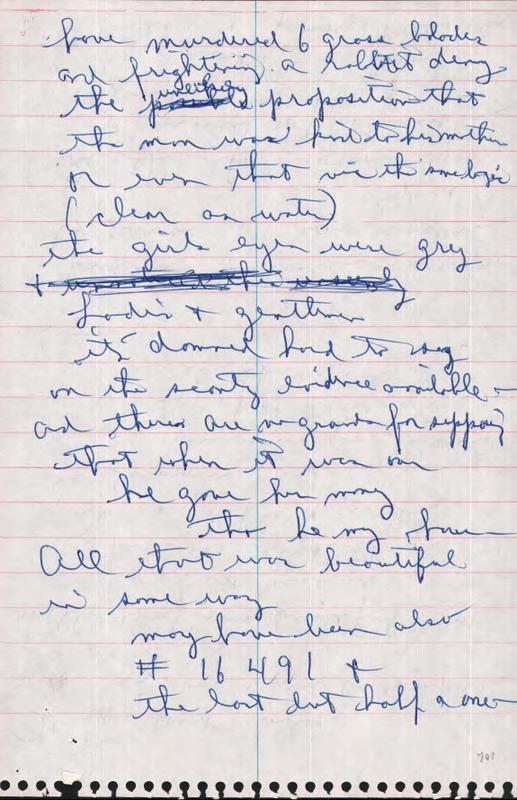 have murdered 6 grass blades
and frightening a rabbit deny
the proposition that
the man was kind to his mother
or even that via the same logic
(clear as water)
the girls eyes were grey
+
Ladies + gentlemen
its damned hard to say
on the scanty evidence available –
and there are no grounds for supposing
that when it was over
he gave her money
tho he may have
All that was beautiful
in some way
may have been also
# 16 491 +
the last but half a one